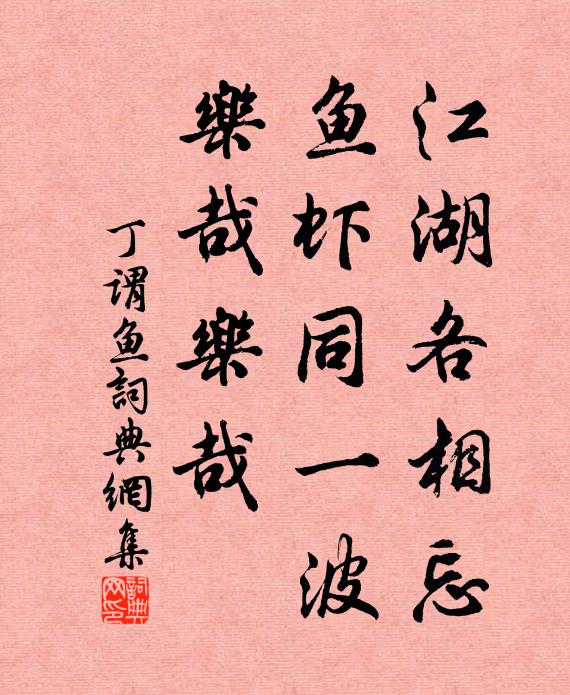 江湖各相忘
鱼虾同一波
樂哉樂哉
丁谓鱼詞典網集
詞典
网印